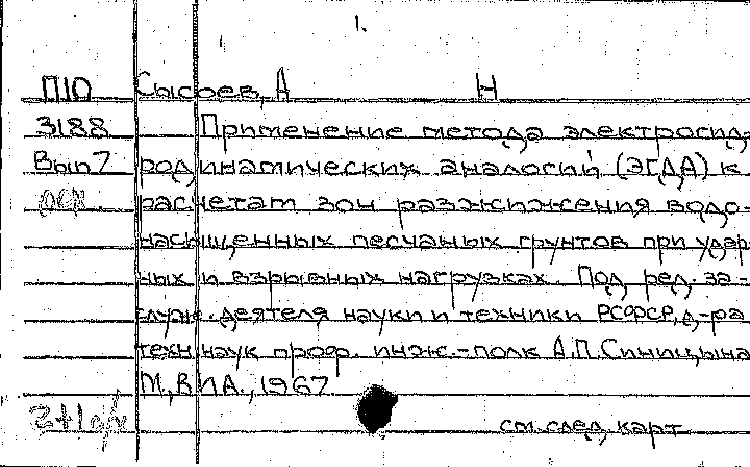 1.
П10 Сысоев, А Н
3188 Применение метода электрогид
Вып7 родинамических аналогий (ЭГДА) к
расчетам зон разжижения водо-
насыщенных песчаных грунтов при удар
ных и взрывных нагрузках. Под ред. за-
служ. деятеля науки и техники РСФСР, д-ра
техн наук проф. инж.-полк А.П. Синицына
М., ВИА., 1967
см. след. карт